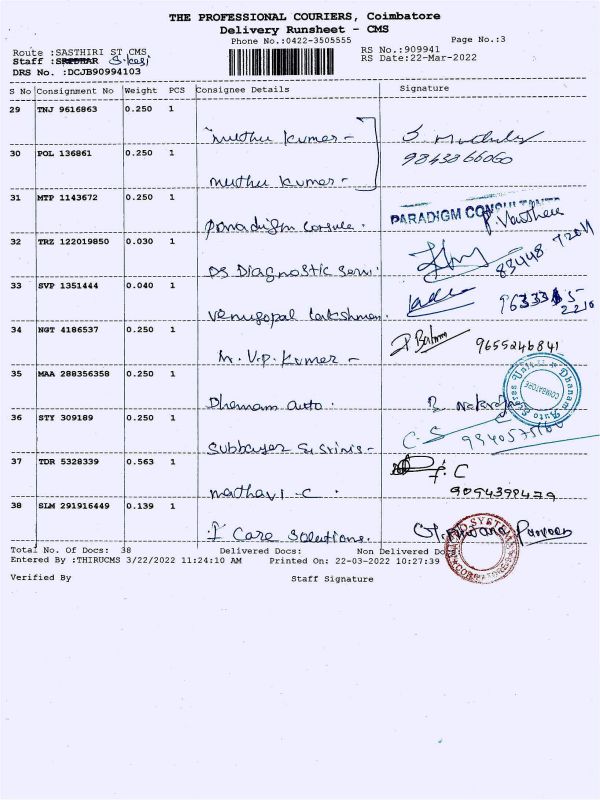 THE PROFESSIONAL COURIERS, Coimbatore
Delivery Runsheet - CMS
Phone No.:0422-3505555
Page No.:3
Route :SASTHIRI ST CMS
RS No.:909941
Staff :SRIDHAR
RS Date:22-Mar-2022
DRS No. :DCJB90994103
S No Consignment No Weight PCS Consignee Details Signature
29 TNJ 9616863 0.250 1
muthu kumar -
9843866060
30 POL 136861 0.250 1
muthu kumar -
31 MTP 1143672 0.250 1
PARADIGM CONSULTANTS
Paradigm consule.
32 TRZ 122019850 0.030 1
DS Diagnostic serv.
83448 72011
33 SVP 1351444 0.040 1
venugopal lakshman.
34 NGT 4186537 0.250 1
M. V.P. Kumar -
9655246841
35 MAA 288356358 0.250 1
Dhanam auto.
Dhanam Auto
COIMBATORE
36 STY 309189 0.250 1
C.S
37 TDR 5328339 0.563 1
mathavi - C.
9094398479
38 SLM 291916449 0.139 1
I Care Solutions.
Total No. Of Docs: 38 Delivered Docs: Non Delivered Docs
Entered By :THIRUCMS 3/22/2022 11:24:10 AM Printed On: 22-03-2022 10:27:39
Verified By Staff Signature